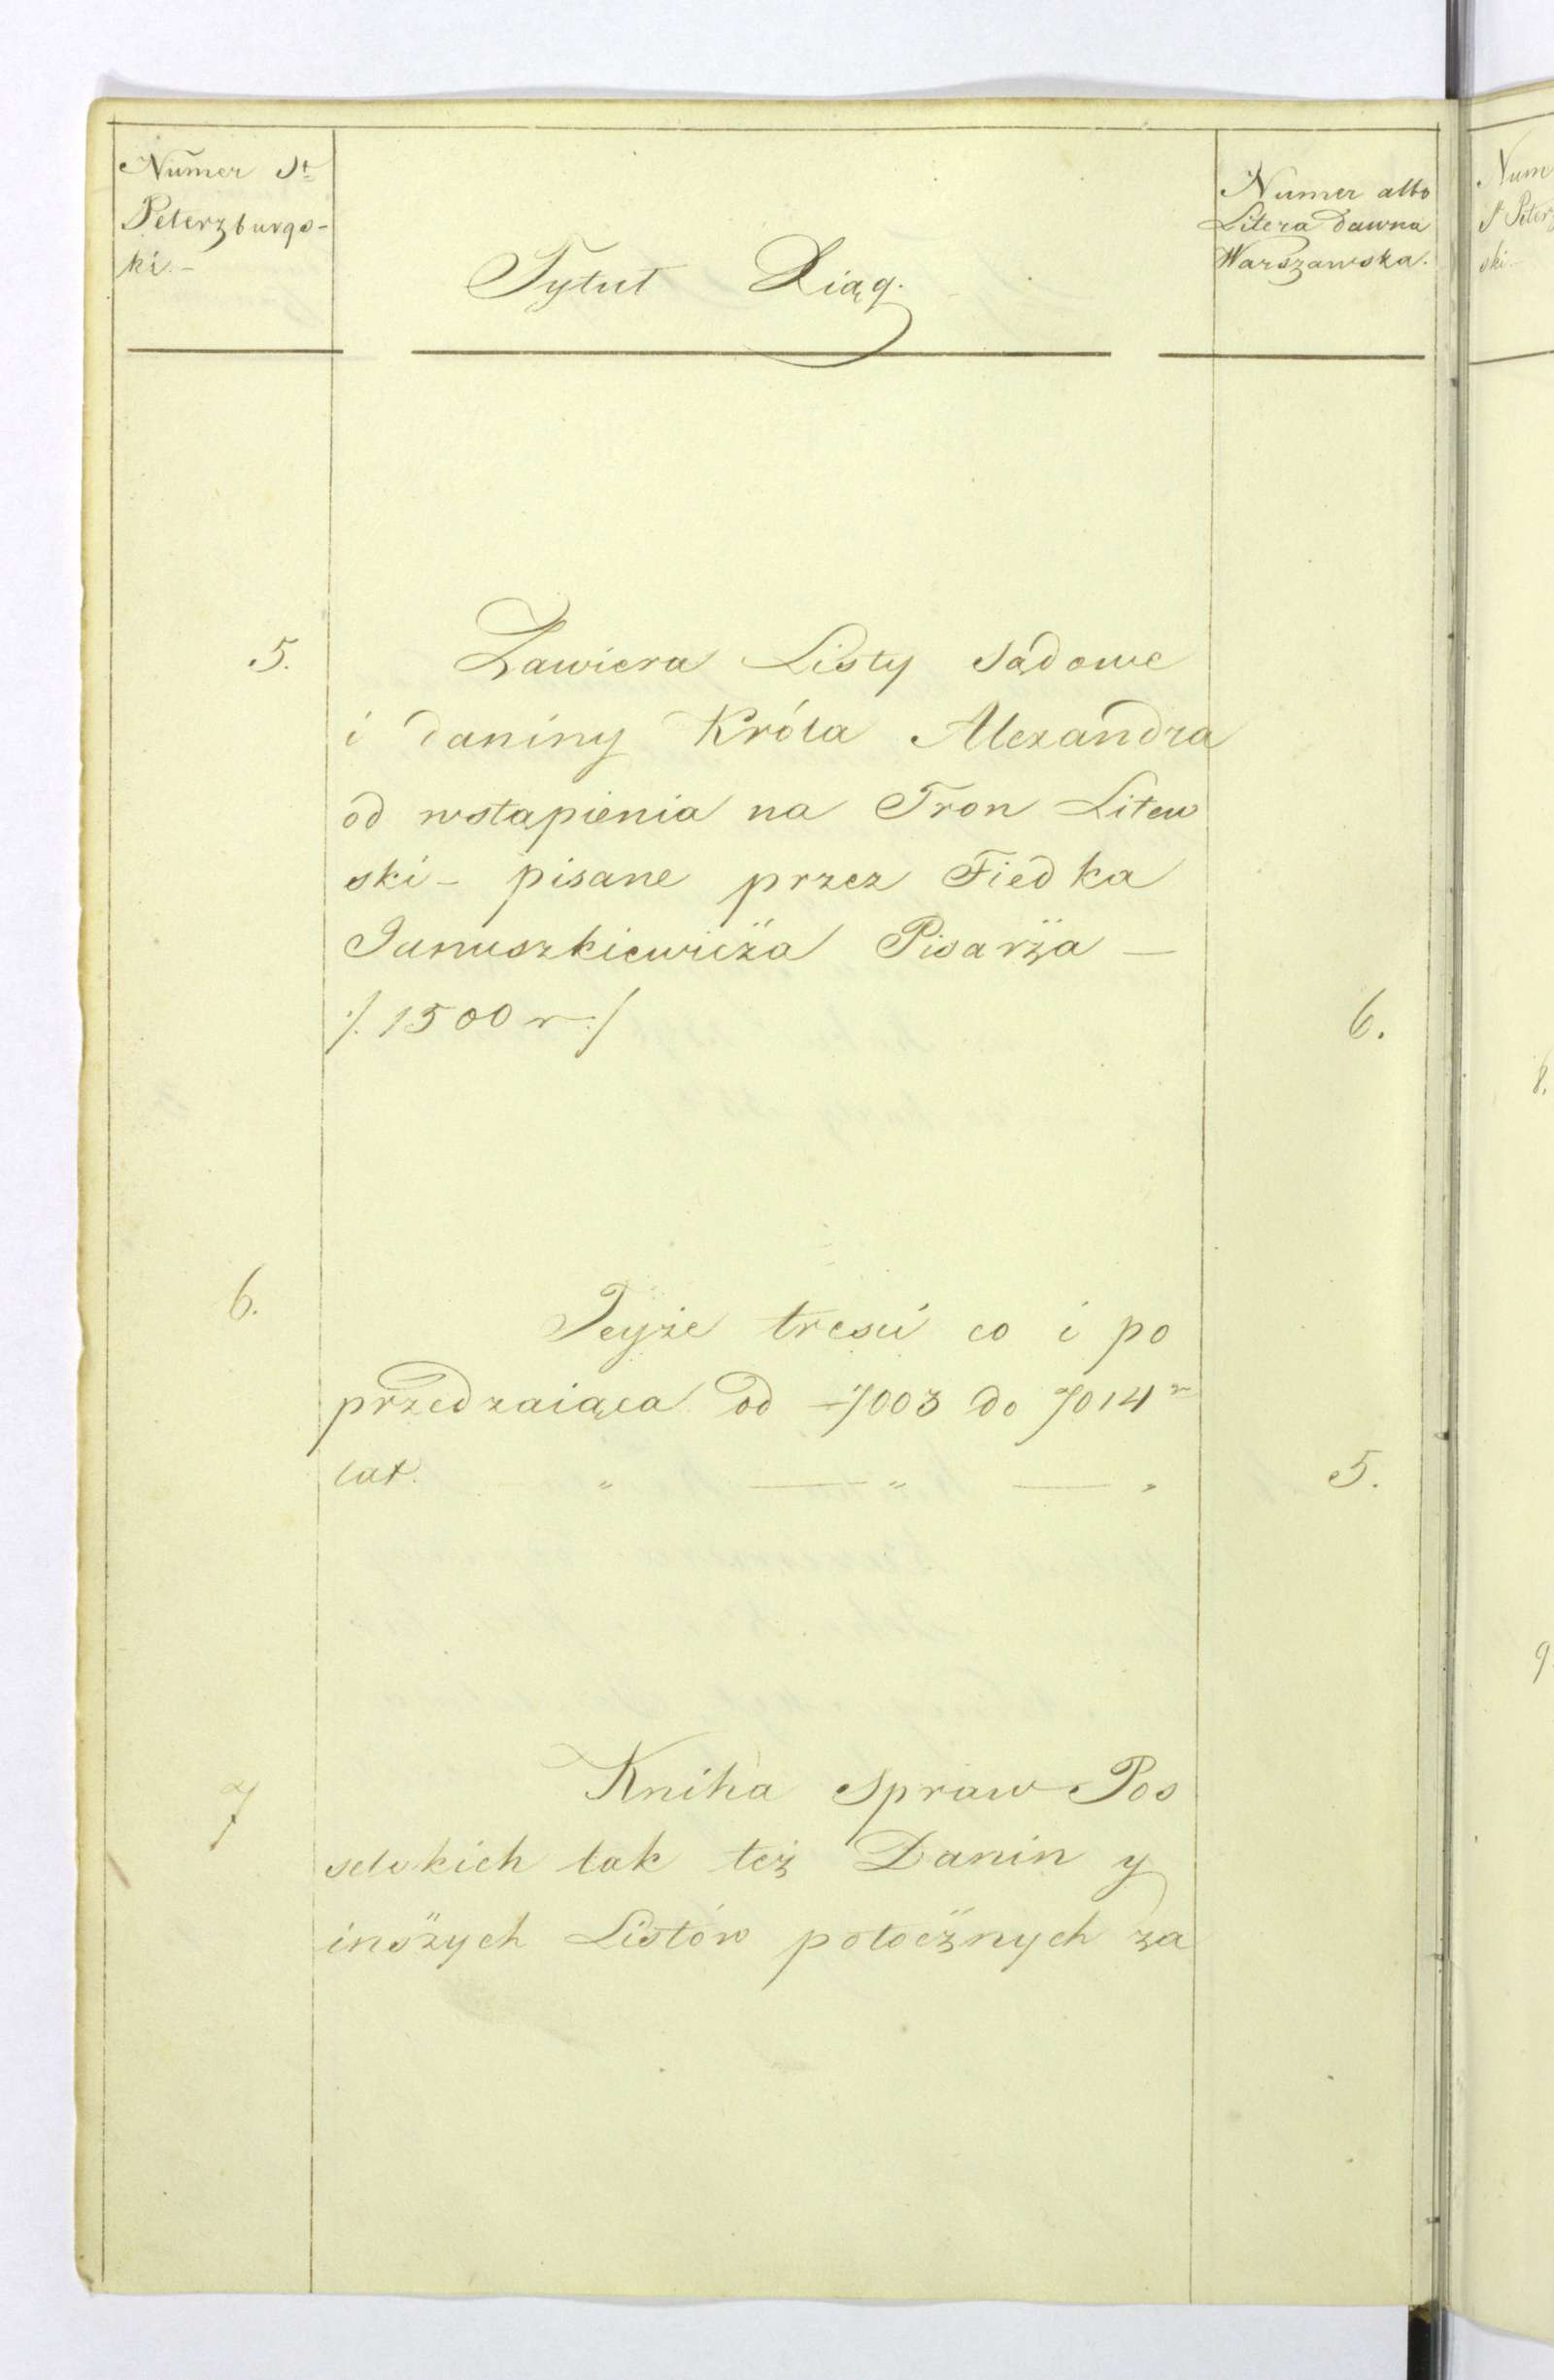 Numer St
Peterzburgs-
ki.-
Tytuł Xiąg.
Numer albo
Litera dawna
Warszawska.
5.
Zawiera Listy sądowe
i daniny Króla Alexandra
od wstąpienia na Tron Litew
ski - pisane przez Fiedka
Januszkiewicża Pisarża —
/. 1500 r ./
6.
6.
Teyże tresci co i po
przedzaiąca od 7003 do 7014 r
lat. " — " — "
5.
7
Kniha Spraw Pos
selskich tak też Danin y
insżych Listów potocżnych za
Num
St Peterz
ski-
8.
9